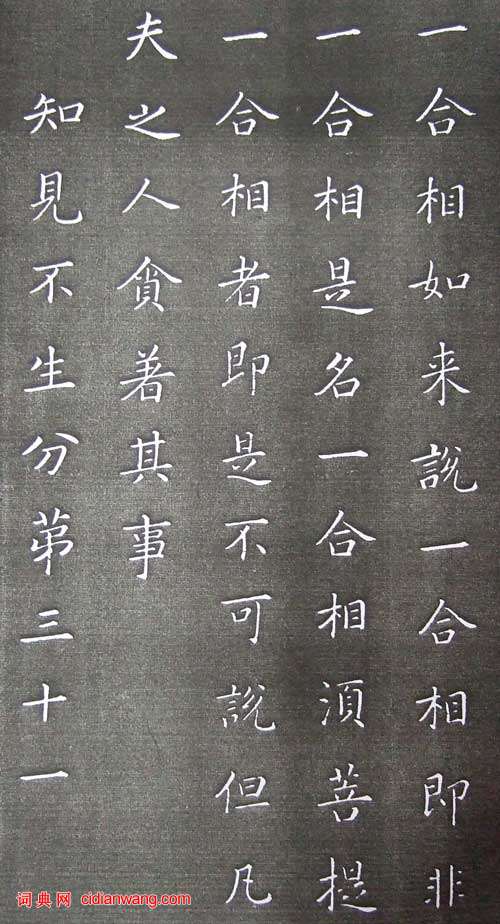 一合相如来說一合相即非
一合相是名一合相須菩提
一合相者即是不可說但凡
夫之人貪著其事
知見不生分苐三十一
词典网 cidianwang.com